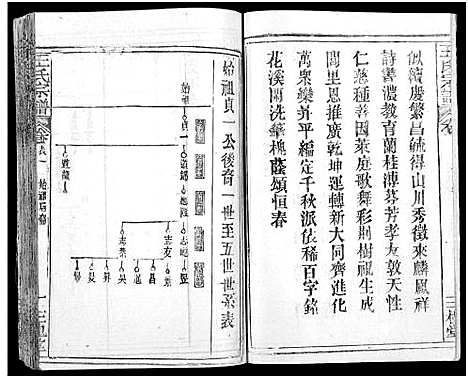 王氏宗譜
似續慶繁昌毓得山川秀徵來麟鳳祥
詩書濃教育蘭桂溥芬芳孝友敦天性
仁慈種善因萊庭歌舞彩荆樹視生成
閭里恩推廣乾坤運轉新大同齊進化
萬衆樂昇平編定千秋派依稀百字銘
花溪開洗肇槐蔭頌恒春
三槐堂
始祖貞一公後裔一世至五世世系表
始祖
貞一
道
道龍
志
志友
志
志
昊
昇
昊
王氏宗譜
卷
一
三槐堂